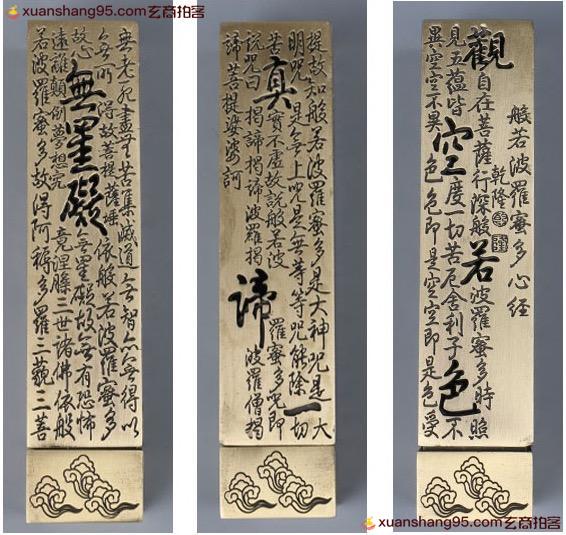 xuanshang95.com玄商拍客
般若波羅蜜多心經
乾隆
觀自在菩薩行深般若波羅蜜多時照
見五蘊皆空度一切苦厄舍利子色不
異空空不異色色即是空空即是色受
提故知般若波羅蜜多是大神咒是大
明咒是無上咒是無等等咒能除一切
苦真實不虛故說般若波羅蜜多咒即
說咒曰揭諦揭諦波羅揭諦波羅僧揭
諦菩提娑婆訶
無老死盡無苦集滅道無智亦無得以
無所得故菩提薩埵依般若波羅蜜多
故心無罣礙無罣礙故無有恐怖
遠離顛倒夢想究竟涅槃三世諸佛依般
若波羅蜜多故得阿耨多羅三藐三菩
xuanshang95.com玄商拍客